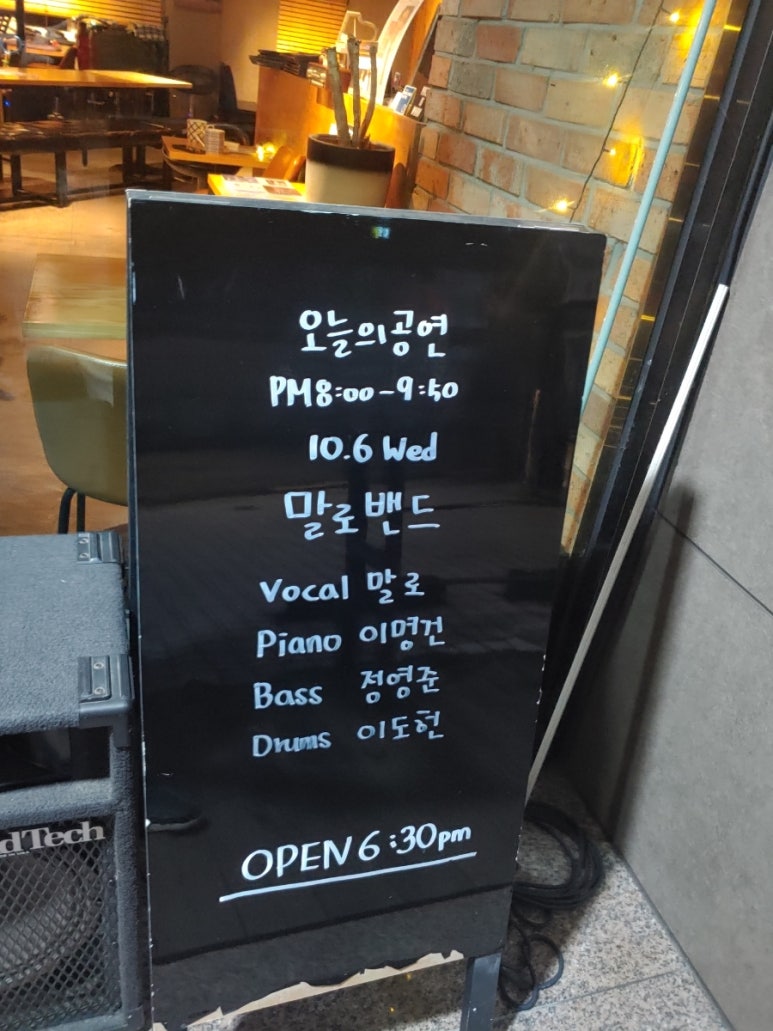 오늘의공연
PM8:00-9:50
10.6 Wed
말로밴드
Vocal 말로
Piano 이명건
Bass 정영준
Drums 이도헌
OPEN 6:30pm
dTech